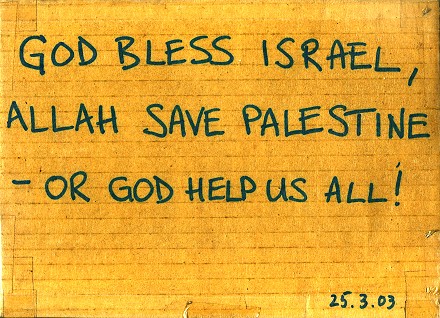 GOD BLESS ISRAEL,
ALLAH SAVE PALESTINE
- OR GOD HELP US ALL!
25.3.03